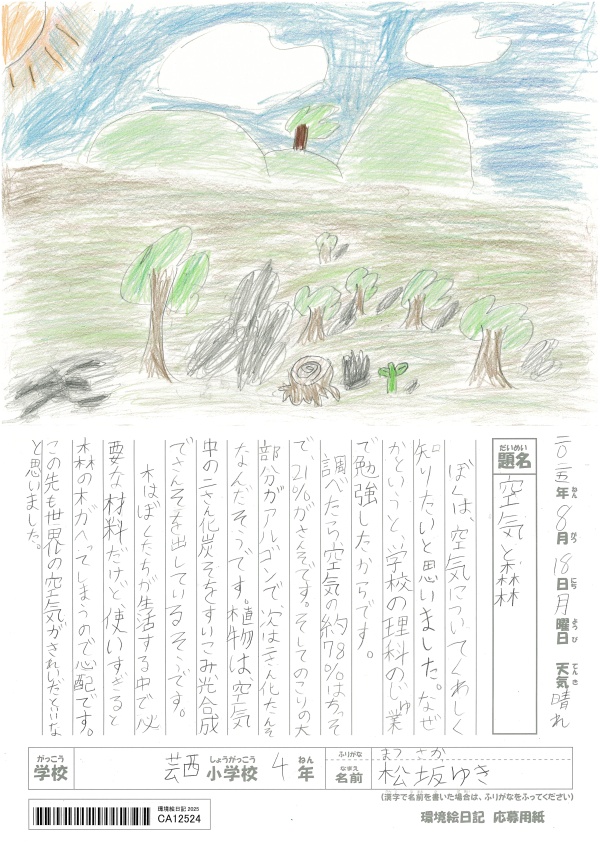 二〇二五年8月18日月曜日 天気晴れ
ねん がつ にち ようび てんき
だいめい
題名 空気と森林
ぼくは、空気についてくわしく
知りたいと思いました。なぜ
かというと、学校の理科のじゅ業
で勉強したからです。
調べたら、空気の約78%はちっそ
で、21%がさんそです。そしてのこりの大
部分がアルゴンで、次は二さん化たんそ
なんだそうです。植物は、空気
中の二さん化炭そをすいこみ光合成
でさんそを出しているそうです。
木はぼくたちが生活する中で必
要な材料だけど、使いすぎると
森の木がへってしまうので心配です。
この先も世界の空気がきれいだといいな
と思いました。
がっこう しょうがっこう ねん
学校 芸西小学校 4年
ふりがな まつ さか
なまえ
名前 松坂ゆき
(漢字で名前を書いた場合は、ふりがなをふってください)
環境絵日記 2025
CA12524
環境絵日記 応募用紙